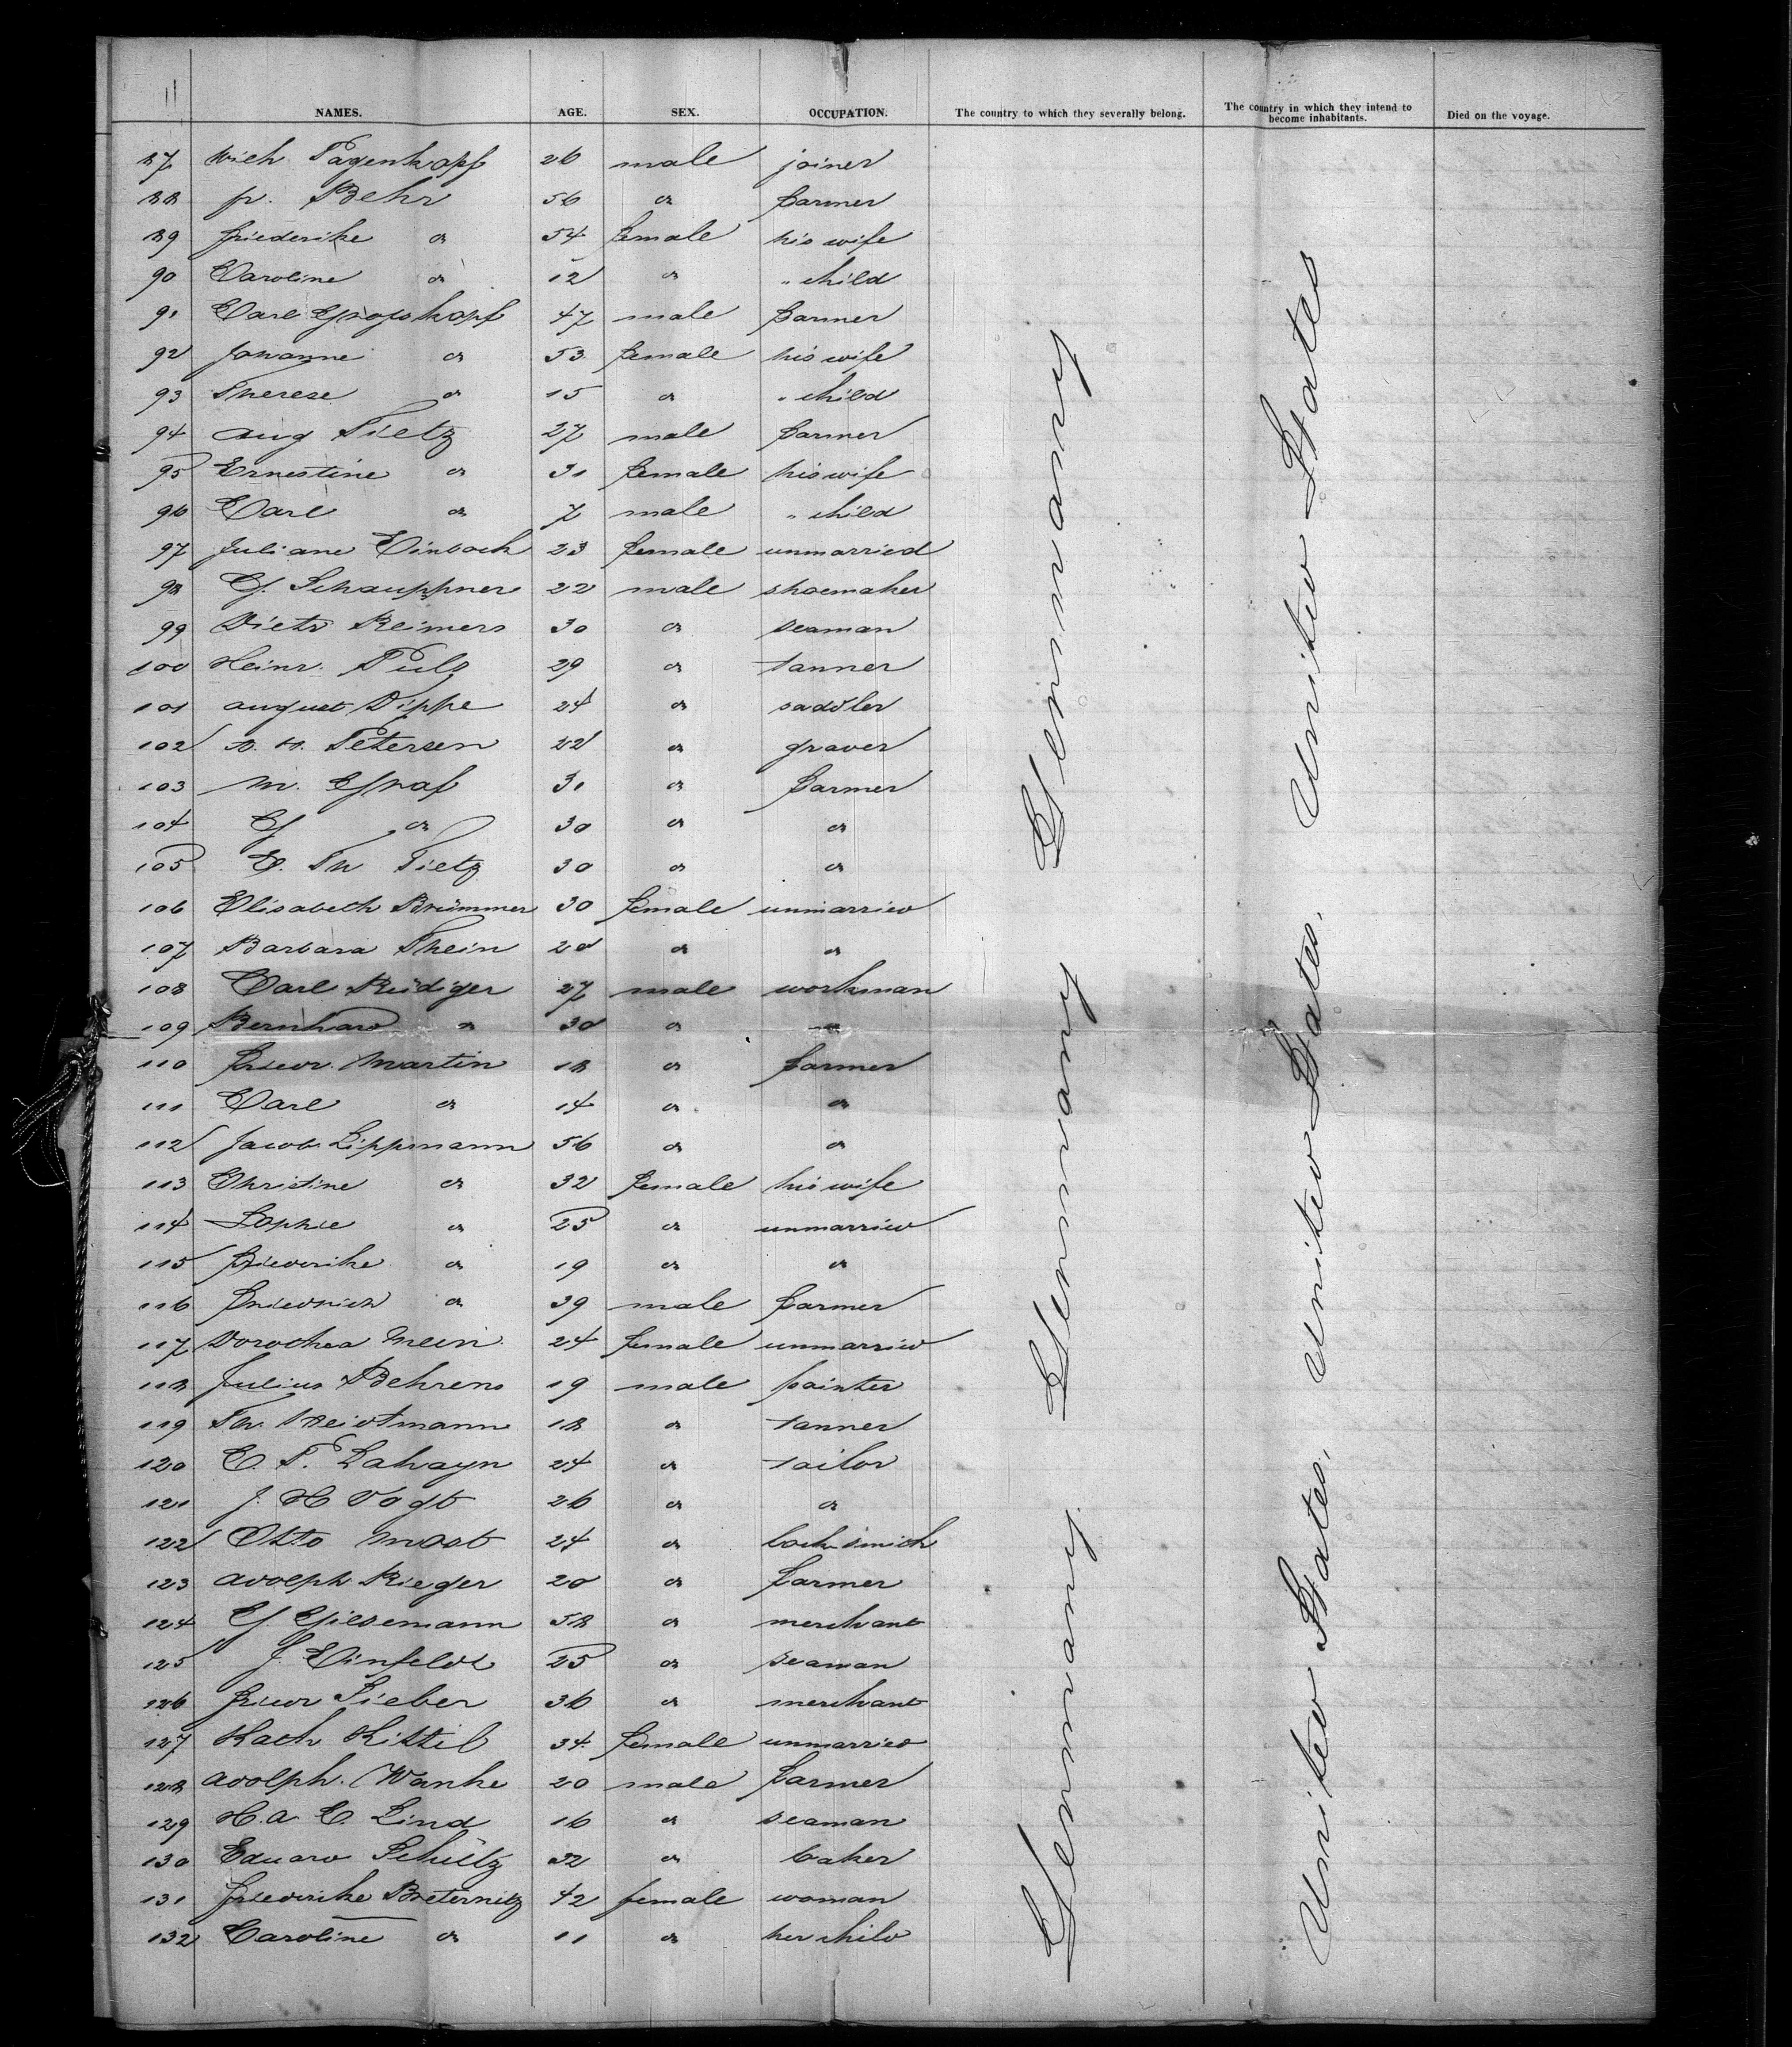 11
NAMES. AGE. SEX. OCCUPATION. The country to which they severally belong. The country in which they intend to become inhabitants. Died on the voyage.
87 Wilh Pagenkopf 26 male joiner
88 fr. Behr 56 do farmer
89 Friederike do 54 female his wife
90 Caroline do 12 do " child
91 Carl Grosskopf 47 male farmer
92 Johanne do 53 female his wife
93 Therese do 15 do " child
94 Aug Tietz 27 male farmer
95 Ernestine do 31 female his wife
96 Carl do 7 male " child
97 Juliane Einbach 23 female unmarried
98 G. Schauppner 22 male shoemaker
99 Dietr Reimers 30 do seaman
100 Heinr. Puls 29 do tanner
101 August Dippe 24 do saddler
102 Petersen 22 do graver
103 M. Graf 31 do farmer
104 G do 30 do do
105 C. Th Tietz 30 do do
106 Elisabeth Brümmer 30 female unmarried
107 Barbara Thein 20 do do
108 Carl Rüdiger 27 male workman
109 Bernhard do 30 do do
110 Friedr. Martin 18 do farmer
111 Carl do 14 do do
112 Jacob Lippmann 56 do do
113 Christine do 32 female his wife
114 Sophie do 25 do unmarried
115 Friederike do 19 do do
116 Friedrich do 39 male farmer
117 Dorothea Mein 24 female unmarried
118 Julius Behrens 19 male painter
119 Th. 18 do tanner
120 C. P. Lahayn 24 do tailor
121 J. H Vogt 26 do do
122 Otto Most 24 do lock smith
123 Adolph Rieger 20 do farmer
124 G. Giesemann 58 do merchant
125 J. Einfeldt 25 do seaman
126 Friedr Sieber 36 do merchant
127 Kath Kittil 34 female unmarried
128 Adolph. Wanke 20 male farmer
129 H. A C. Lind 16 do seaman
130 Eduard Schültz 32 do baker
131 Friederike Breternitz 42 female woman
132 Caroline do 11 do her child
Germany Germany Germany
United States. United States. United States